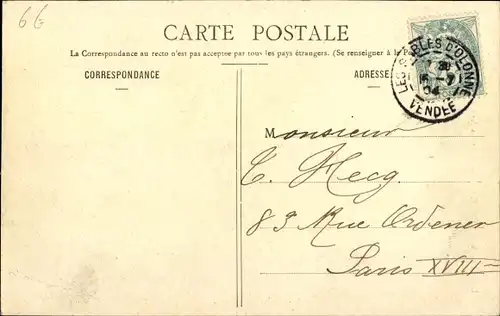 6 G
CARTE POSTALE
La Correspondance au recto n'est pas acceptée par tous les pays étrangers. (Se renseigner à la
CORRESPONDANCE
ADRESSE
LES SABLES D'OLONNE
30
15 -7
04
VENDÉE
Monsieur
C. Hecg
83 Rue Ordener
Paris XVIII